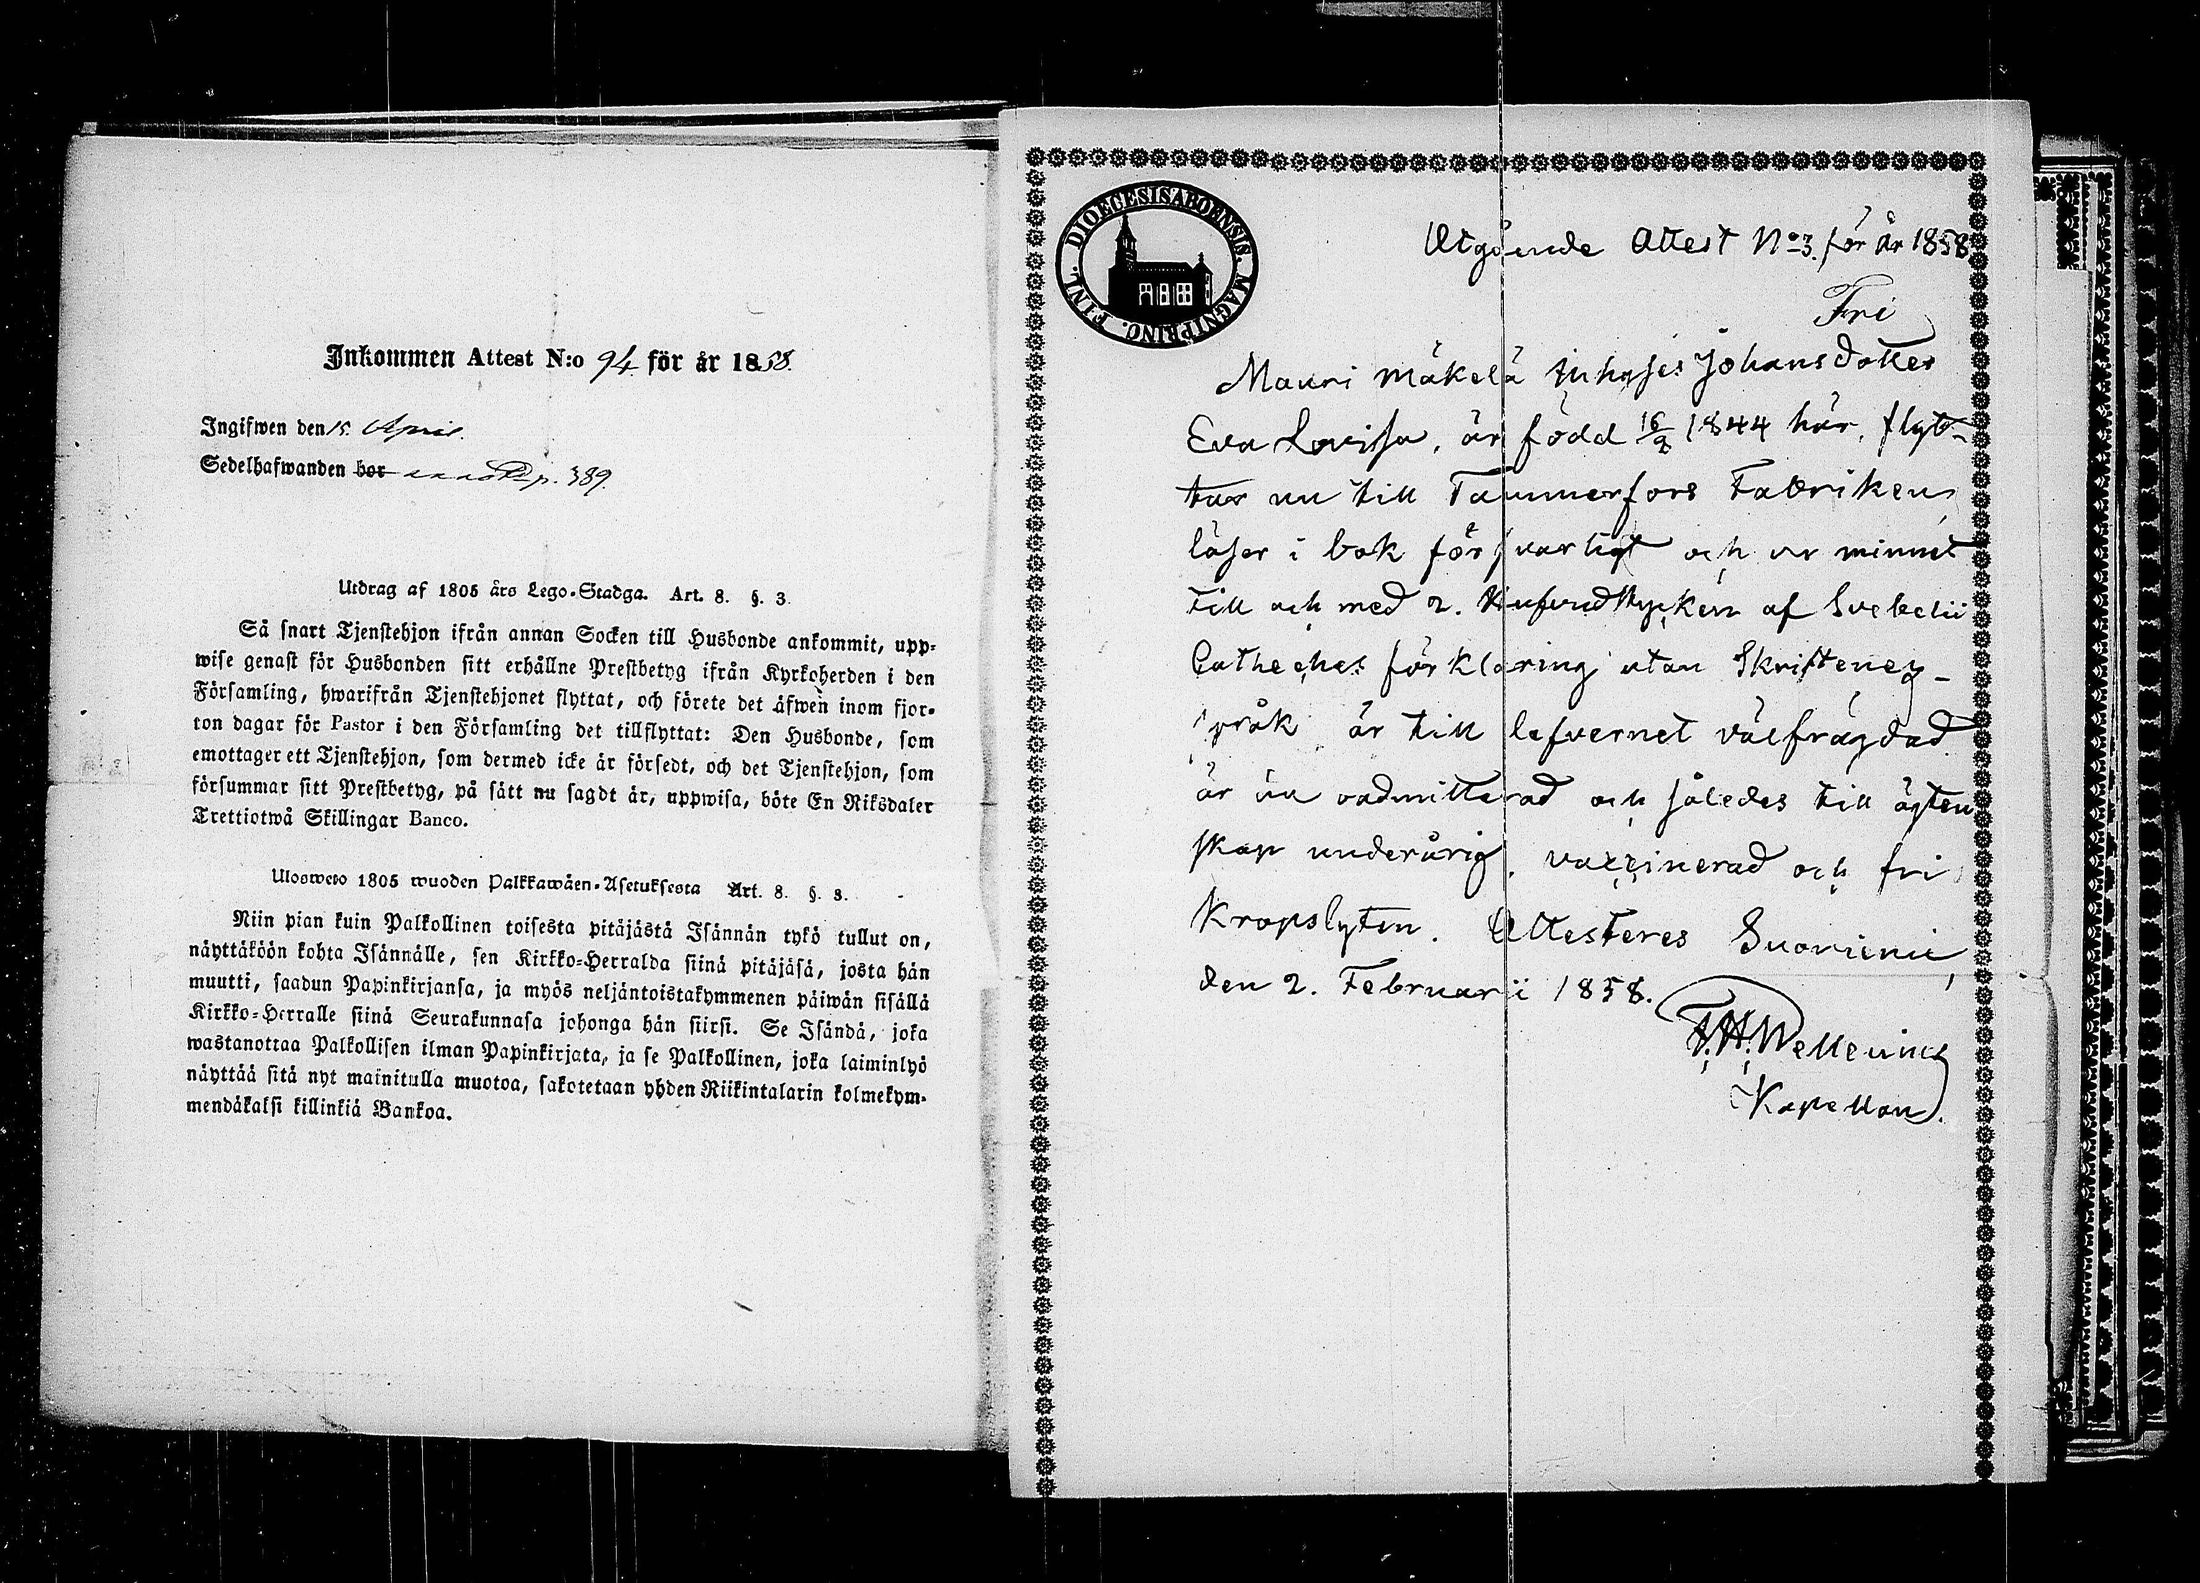 Inkommen Attest N:o 94 för år 1858.
Ingifwen den 15. April.
Sedelhafwanden bor p. 389.
Utdrag af 1805 års Lego-Stadga. Art. 8. §. 3.
Så snart Tjenstehjon ifrån annan Socken till Husbonde ankommit, upp-
wise genast för Husbonden sitt erhållne Prestbetyg ifrån Kyrkoherden i den
Församling, hwarifrån Tjenstehjonet flyttat, och förete det äfwen inom fjor-
ton dagar för Pastor i den Församling det tillflyttat: Den Husbonde, som
emottager ett Tjenstehjon, som dermed icke är försedt, och det Tjenstehjon, som
försummar sitt Prestbetyg, på sätt nu sagdt är, uppwisa, böte En Riksdaler
Trettiotwå Skillingar Banco.
Ulosweto 1805 wuoden Palkkawäen-Asetuksesta Art. 8. §. 3.
Niin pian kuin Palkollinen toisesta pitäjästä Isännän tykö tullut on,
näyttäköön kohta Isännälle, sen Kirkko-Herralda siinä pitäjäsä, josta hän
muutti, saadun Papinkirjansa, ja myös neljäntoistakymmenen päiwän sisällä
Kirkko-Herralle siinä Seurakunnasa johonga hän siirsi. Se Isändä, joka
wastanottaa Palkollisen ilman Papinkirjata, ja se Palkollinen, joka laiminlyö
näyttää sitä nyt mainitulla muotoa, sakotetaan yhden Riikintalarin kolmekym-
mendäkaksi killinkiä Bankoa.
DIOECESIS ABOENSIS. MAGNI PRINC. FINL.
Utgående Attest No 3. för år 1858.
Fri
Mauri Mäkelä Inhyses Johansdotter
Eva Lovisa, är född 16/2 1844 här, flyt-
tar nu till Tammerfors Fabriken,
läser i bok försvarligt och ur minnet
till och med 2. Hufvudstycken af Svebelii
Catheches förklaring utan Skriftenes
språk är till lefvernet välfrägdad
är oadmitterad och således till ägten
skap underårig, vaccinerad och fri
Kropslyten. Attesteres Suoniemi,
den 2. Februarii 1858.
F. H. Wellenius
Kapellan.